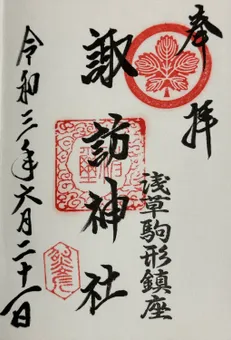 奉拝
浅草駒形鎮座
諏訪神社
令和三年六月二十一日